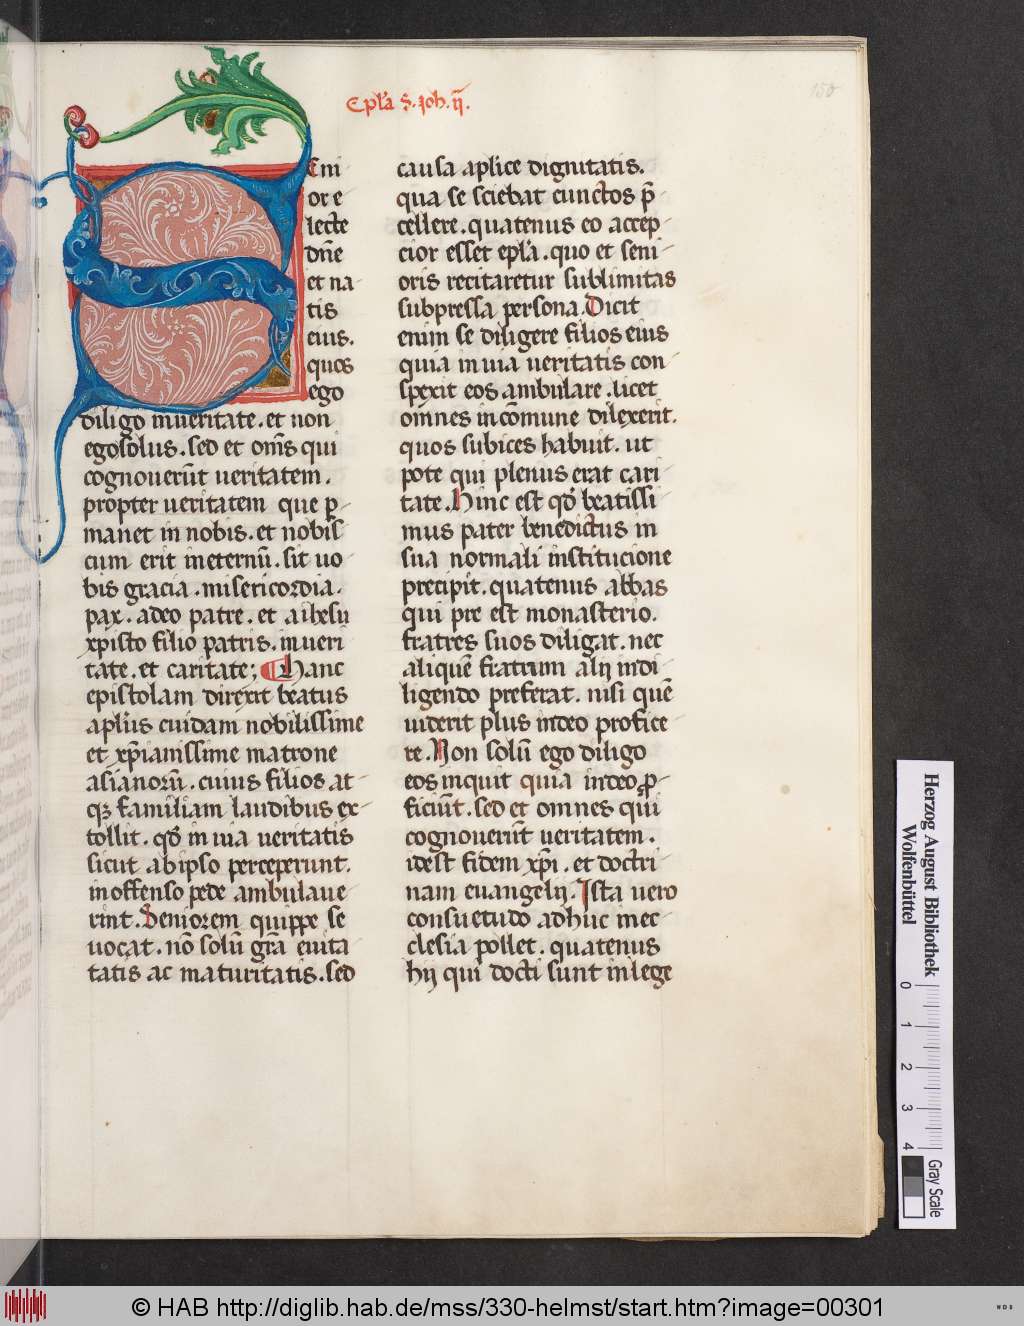 Epl'a s. Joh. ij.
150
Seni
or e
lecte
dn̄e
et na-
tis
eius.
quos
ego
diligo in ueritate. et non
ego solus. sed et om̄s qui
cognouerūt ueritatem.
propter ueritatem que p̲
manet in nobis. et nobis
cum erit in eternū. sit uo-
bis gracia. misericordia.
pax. a deo patre. et a ihesu
xpisto filio patris. in ueri-
tate. et caritate; Hanc
epistolam direxit beatus
apl'us cuidam nobilissime
et xp̄ianissime matrone
asianorū. cuius filios at-
qꝫ familiam laudibus ex-
tollit. qd̄ in uia ueritatis
sicut ab ipso perceperunt.
inoffenso pede ambulaue-
rint. Seniorem quippe se
uocat. nō solū gr̄a euita
tatis ac maturitatis. sed
causa aplice dignitatis.
qua se sciebat cunctos p̄-
cellere. quatenus eo accep-
cior esset epl'a. quo et seni-
oris recitaretur sublimitas
subpressa persona. Dicit
enim se diligere filios eius
quia in uia ueritatis con-
spexit eos ambulare. licet
omnes in cōmune dilexerit.
quos subices habuit. ut
pote qui plenus erat cari-
tate. Hinc est qd̄ beatissi-
mus pater benedictus in
sua normali institucione
precipit. quatenus abbas
qui pre est monasterio.
fratres suos diligat. nec
aliquē fratrum alij in di-
ligendo preferat. nisi quē
uiderit plus in deo profice-
re. Non solū ego diligo
eos inquit quia in deo ꝓ-
ficiūt. sed et omnes qui
cognouerūt ueritatem.
idest fidem xp̄i. et doctri-
nam euangelij. Ista uero
consuetudo adhuc in ec-
clesia pollet. quatenus
hij qui docti sunt in lege
Herzog August Bibliothek
Wolfenbüttel
0 1 2 3 4
Gray Scale
© HAB http://diglib.hab.de/mss/330-helmst/start.htm?image=00301
WDB